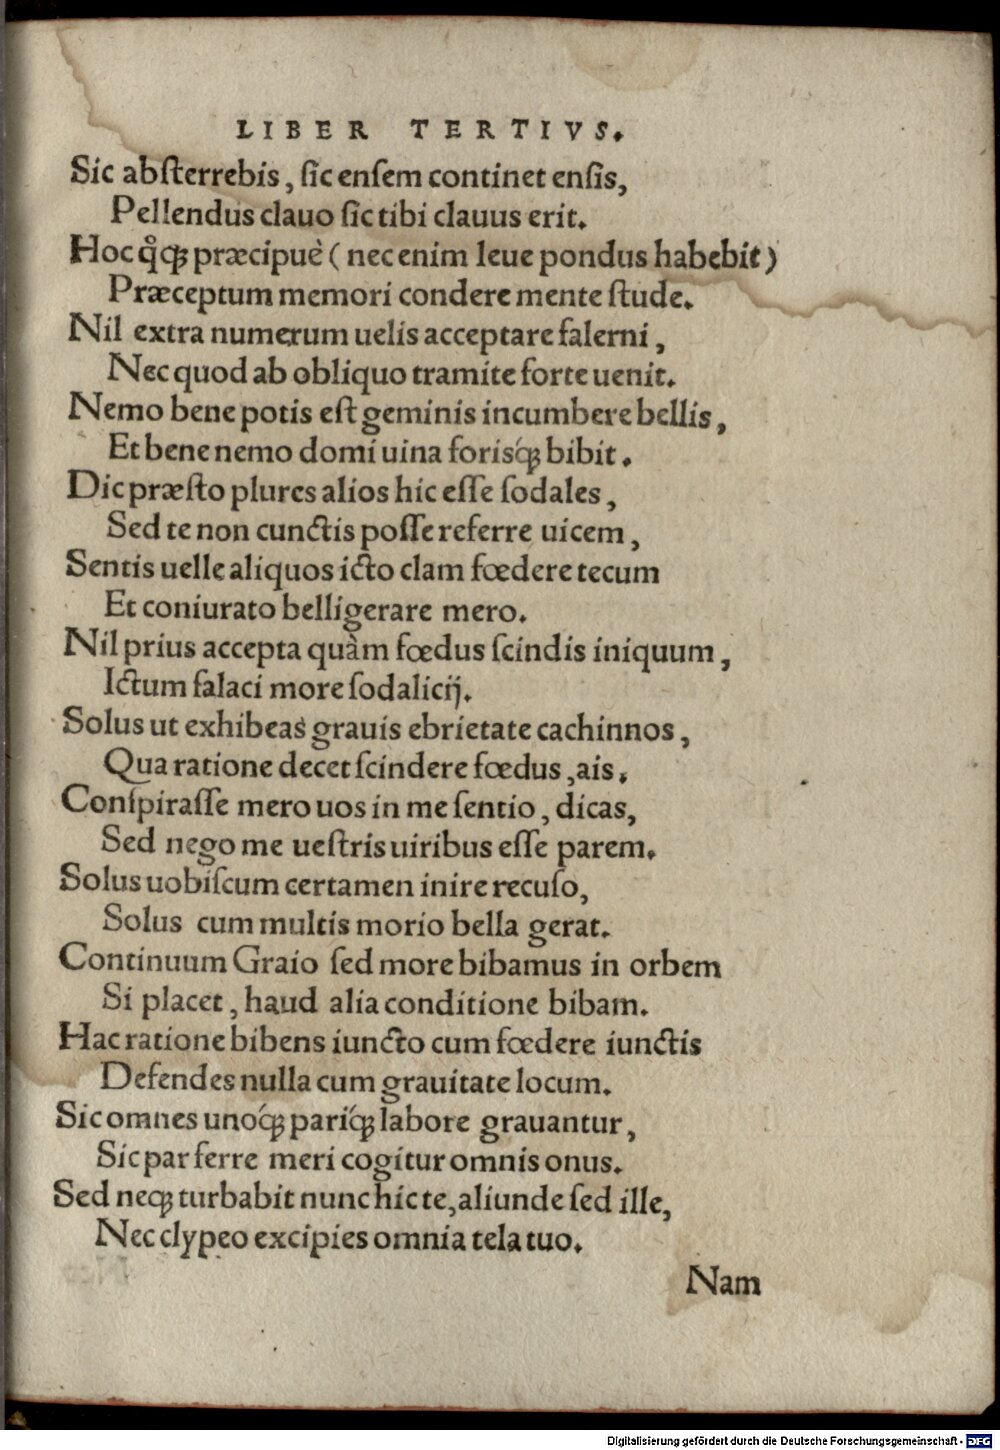 LIBER TERTIVS.
Sic abſterrebis, ſic enſem continet enſis,
Pellendus clauo ſic tibi clauus erit.
Hoc qͦꝗ præcipuè ( nec enim leue pondus habebit )
Præceptum memori condere mente ſtude.
Nil extra numerum uelis acceptare falerni,
Nec quod ab obliquo tramite forte uenit.
Nemo bene potis eſt geminis incumbere bellis,
Et bene nemo domi uina forisq́ꝫ bibit.
Dic præſto plures alios hic eſſe ſodales,
Sed te non cunctis poſſe referre uicem,
Sentis uelle aliquos icto clam fœdere tecum
Et coniurato belligerare mero.
Nil prius accepta quàm fœdus ſcindis iniquum,
Ictum falaci more ſodalicij.
Solus ut exhibeas grauis ebrietate cachinnos,
Qua ratione decet ſcindere fœdus, ais.
Conſpiraſſe mero uos in me ſentio, dicas,
Sed nego me ueſtris uiribus eſſe parem.
Solus uobiſcum certamen inire recuſo,
Solus cum multis morio bella gerat.
Continuum Graio ſed more bibamus in orbem
Si placet, haud alia conditione bibam.
Hac ratione bibens iuncto cum fœdere iunctis
Defendes nulla cum grauitate locum.
Sic omnes unoq́ꝫ pariq́ꝫ labore grauantur,
Sic par ferre meri cogitur omnis onus.
Sed neqꝫ turbabit nunc hic te, aliunde ſed ille,
Nec clypeo excipies omnia tela tuo.
Nam
Digitalisierung gefördert durch die Deutsche Forschungsgemeinschaft - DFG